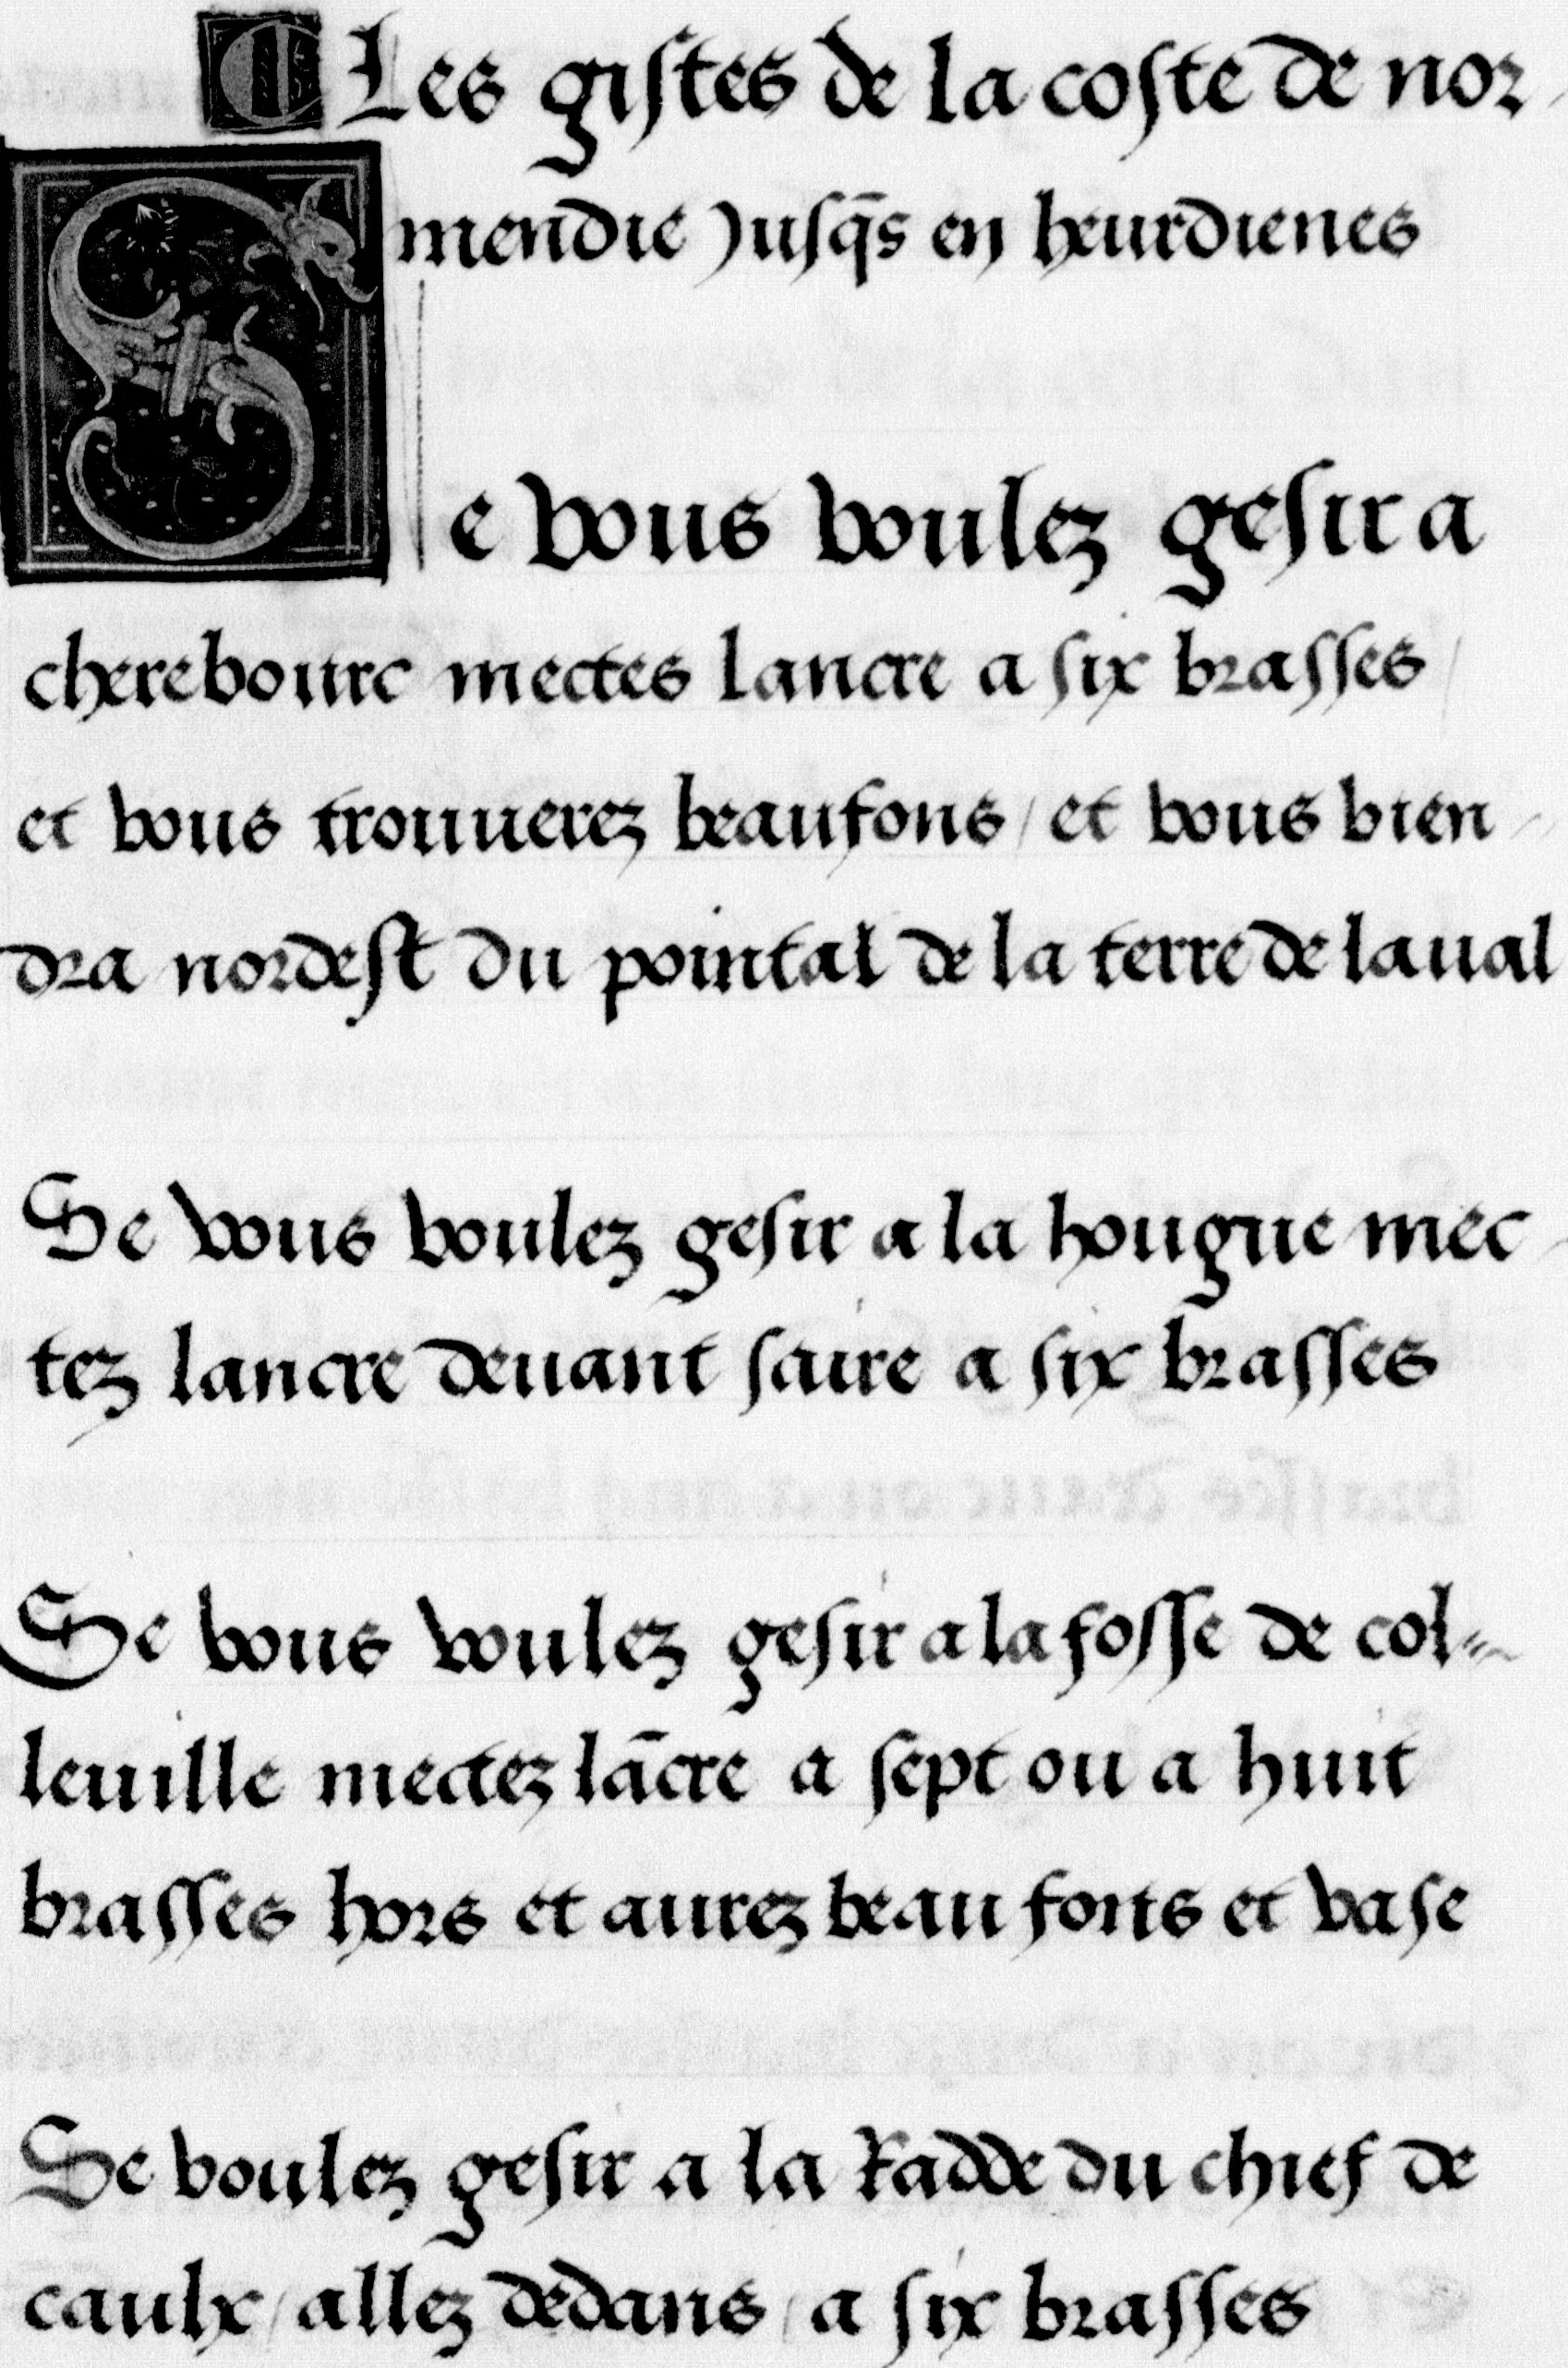 ¶ Les gistes de la coste de nor-
mendie jusq̄s en heurdienes
Se vous voulez gesir a
cherebourc mectes lancre a six brasses /
et vous trouuerez beaufons / et vous bien-
dra nordest du pointal de la terre de laual
Se vous voulez gesir a la hougue mec-
tez lancre deuant saire a six brasses
Se vous voulez gesir a la fosse de col-
leuille mectez lācre a sept ou a huit
brasses hors et aurez beau fons et vase
Se voulez gesir a la Radde du chief de
caulx / allez dedans / a six brasses